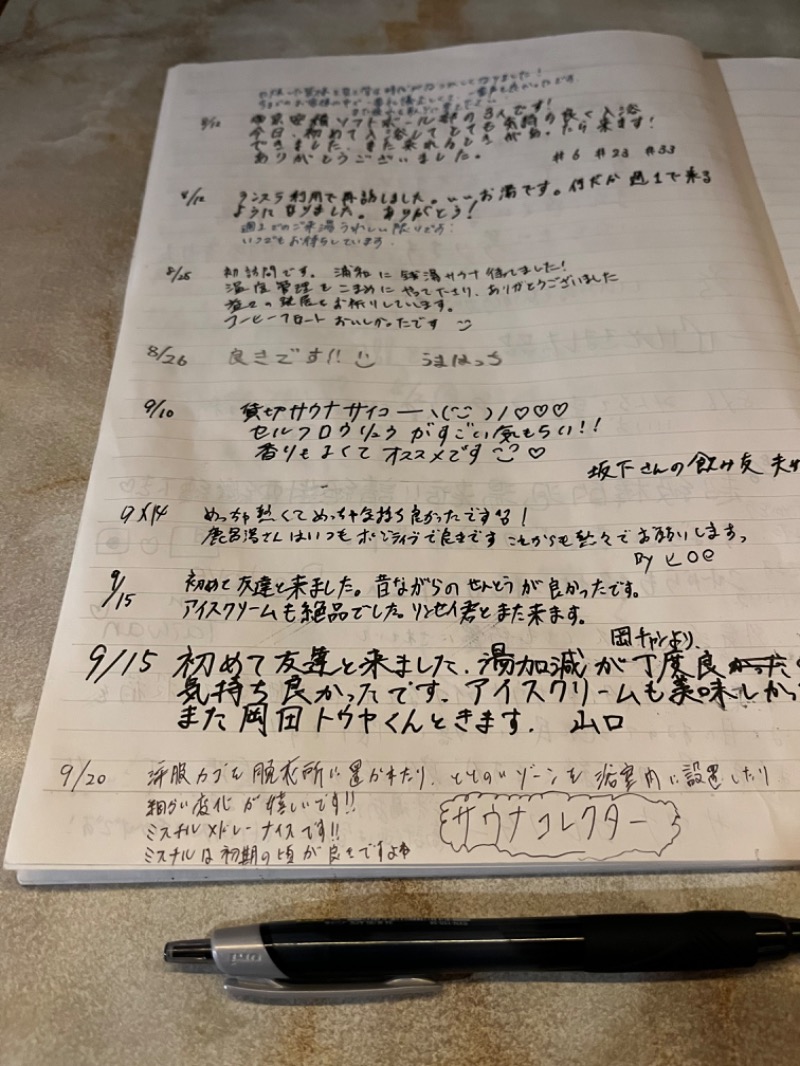 今日、初めて入浴してとても気持の良く入浴
できました。また来れるときがあったら来ます!
ありがとうございました。 #6 #23 #33
8/12 ランステ利用で再訪しました。いいお湯です。何だか週1で来る
ようになりました。ありがとう!
週1でのご来湯うれしい限りです!
いつでもお待ちしています。
8/25 初訪問です。浦和に銭湯サウナ 待てました!
温度管理もこまめにやって下さり、ありがとうございました
益々の発展をお祈りしています。
コーヒーフロートおいしかったです
8/26 良きです!! うまはっち
9/10 貸切サウナサイコー ヽ( )ノ♡♡♡
セルフロウリュウがすごい気もちい!!
香りもよくてオススメです ♡
坂下さんの飲み友
9/14 めっちゃ熱くてめっちゃ気持ち良かったです!
鹿島湯さんはいつもポジティブで良きです これからも熱々でお願いします。
By ヒロe
9/15 初めて友達と来ました。昔ながらのせんとうが良かったです。
アイスクリームも絶品でした。リンセイ君とまた来ます。
岡チャンより、
9/15 初めて友達と来ました、湯加減が丁度良
気持ち良かったです、アイスクリームも美味しかっ
また岡田トウヤくんときます. 山口
9/20 洋服カゴを脱衣所に置かれたり、ととのいゾーンを浴室内に設置したり
細かい変化が嬉しいです!!
ミスチルメドレーナイスです!!
ミスチルは初期の頃が良きですよね
サウナコレクター